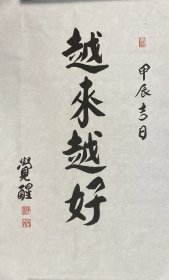 甲辰吉日
越來越好
覺醒